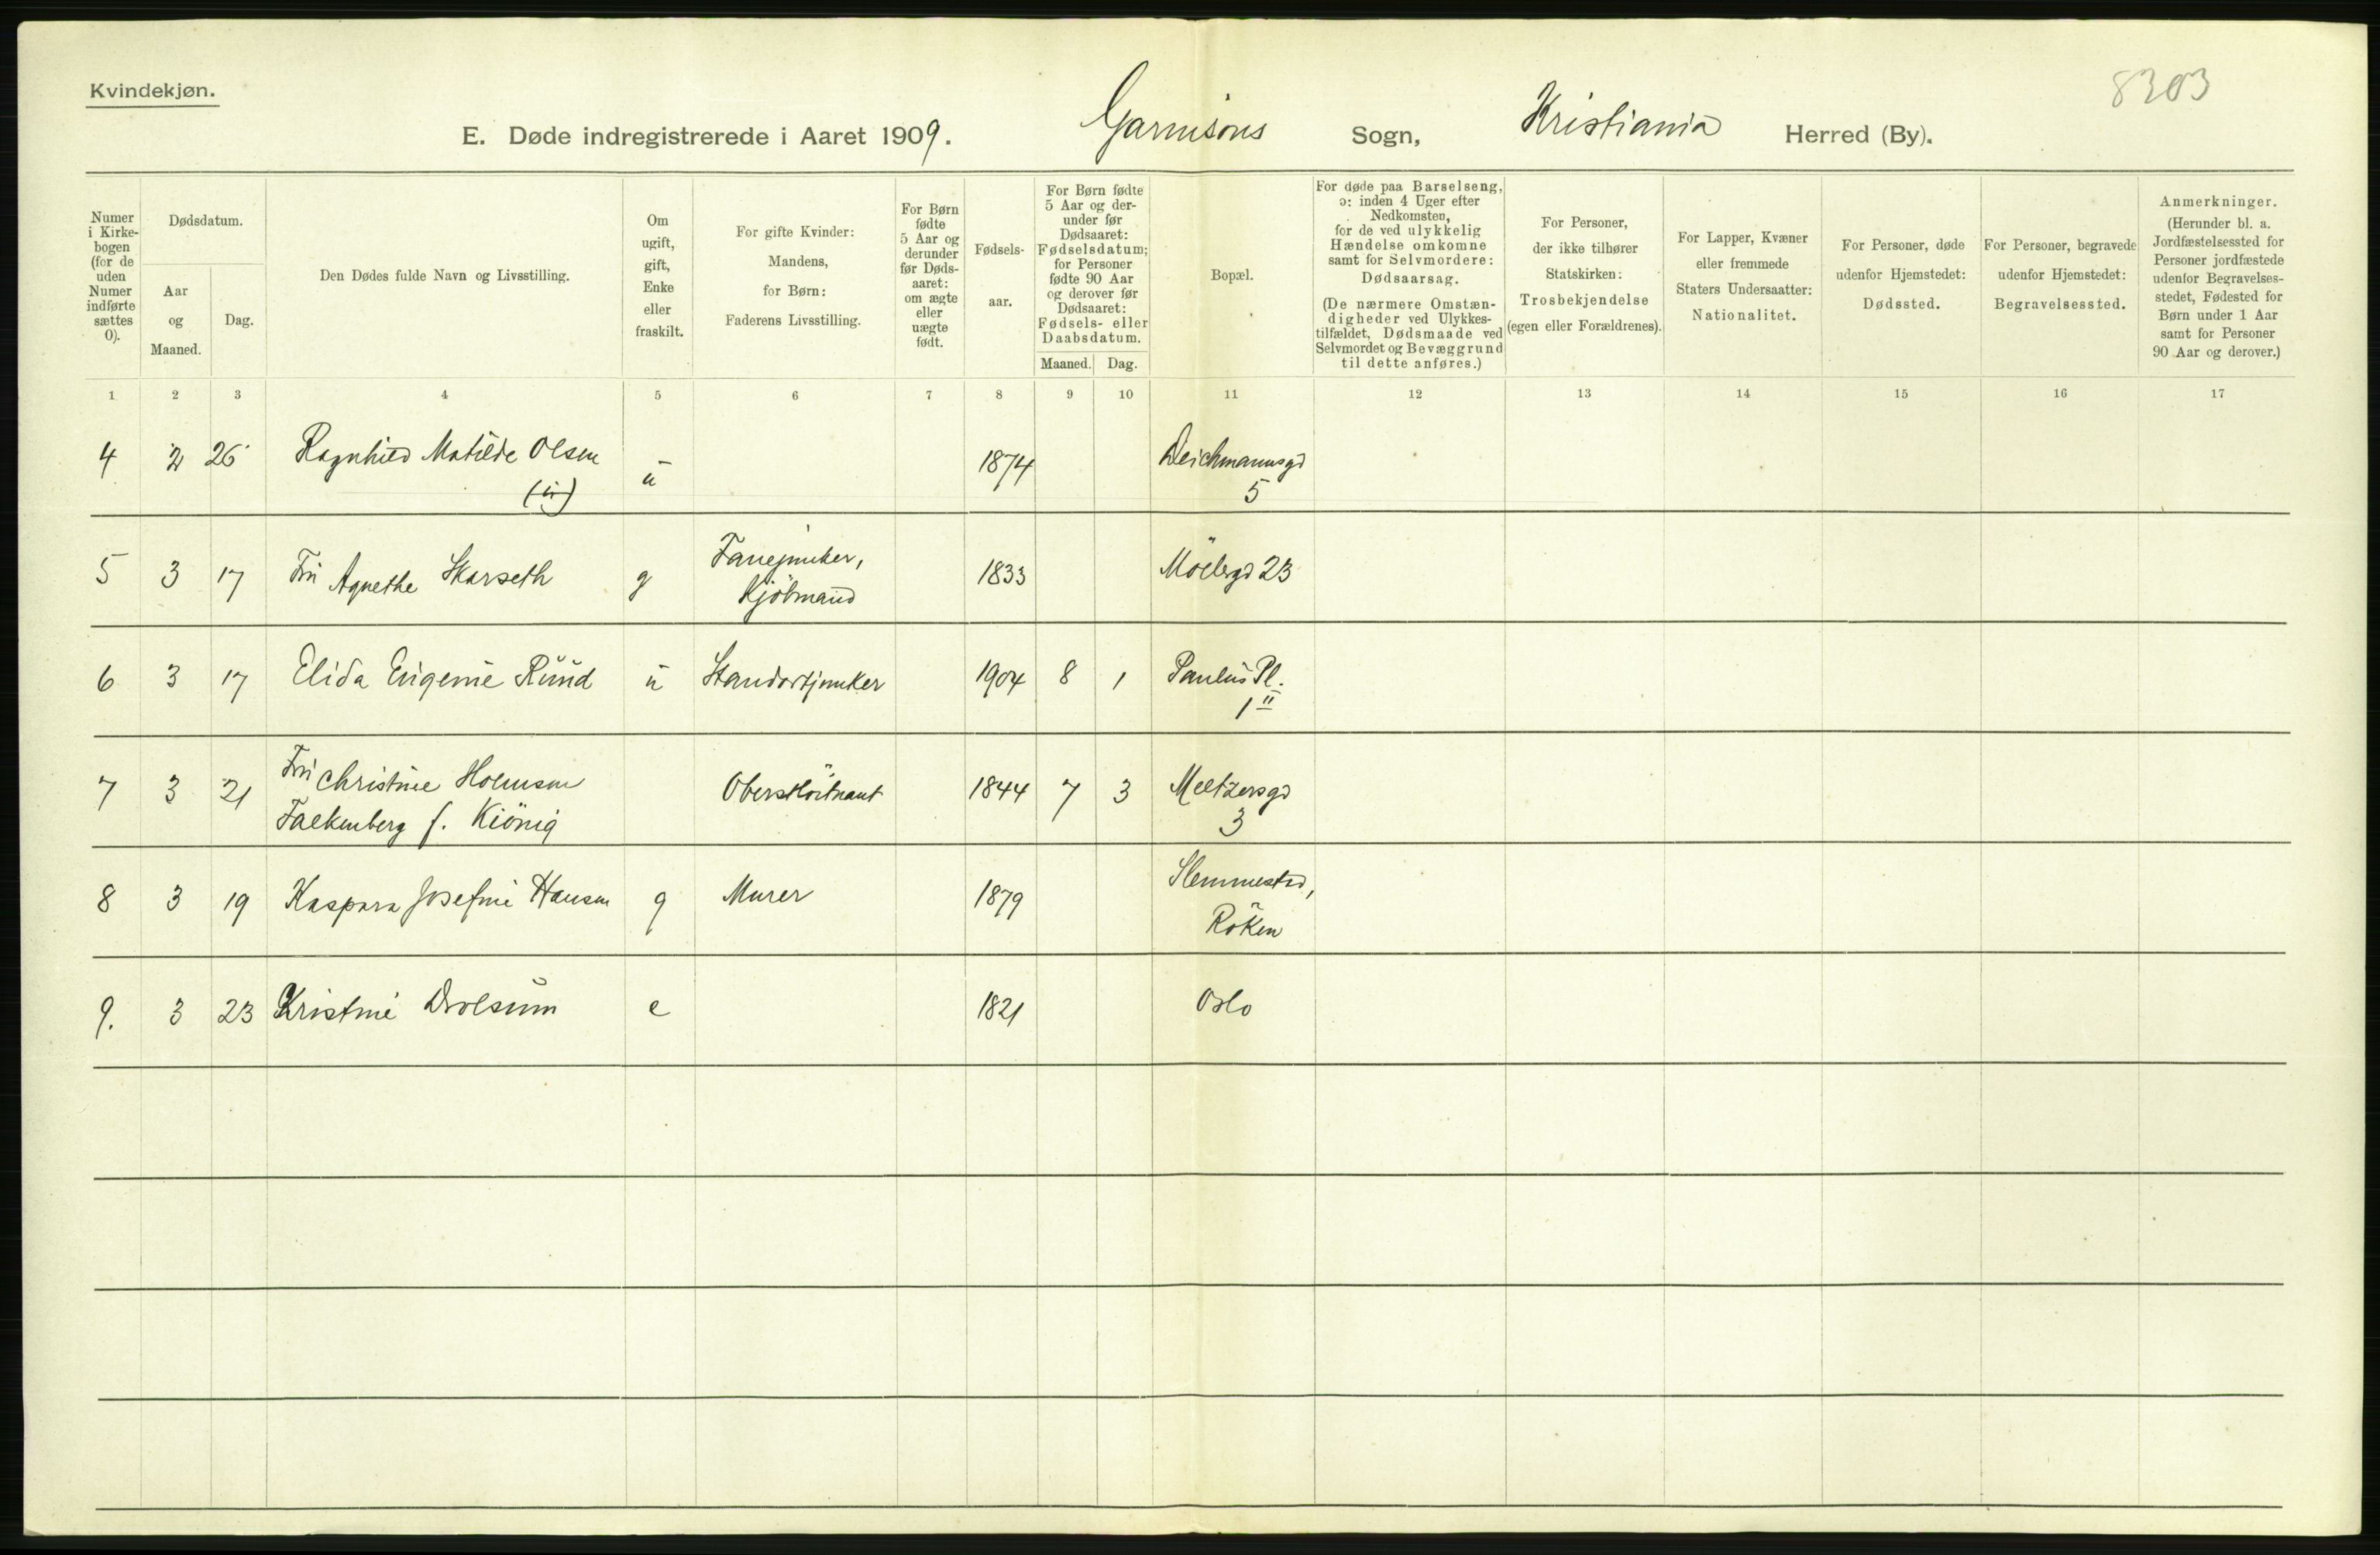 Kvindekjøn.
8303
E. Døde indregistrerede i Aaret 1909. Garnisons Sogn, Kristiania Herred (By).
Numer i Kirkebogen (for de uden Numer indførte sættes 0).
Dødsdatum.
Aar og Maaned.
Dag.
Den Dødes fulde Navn og Livsstilling.
Om ugift, gift, Enke eller fraskilt.
For gifte Kvinder: Mandens, for Børn: Faderens Livsstilling.
For Børn fødte 5 Aar og derunder før Dødsaaret: om ægte eller uægte født.
Fødselsaar.
For Børn fødte 5 Aar og derunder før Dødsaaret: Fødselsdatum; for Personer fødte 90 Aar og derover før Dødsaaret: Fødsels- eller Daabsdatum.
Maaned. Dag.
Bopæl.
For døde paa Barselseng, ɔ: inden 4 Uger efter Nedkomsten, for de ved ulykkelig Hændelse omkomne samt for Selvmordere: Dødsaarsag.
(De nærmere Omstændigheder ved Ulykkestilfældet, Dødsmaade ved Selvmordet og Bevæggrund til dette anføres.)
For Personer, der ikke tilhører Statskirken: Trosbekjendelse (egen eller Forældrenes).
For Lapper, Kvæner eller fremmede Staters Undersaatter: Nationalitet.
For Personer, døde udenfor Hjemstedet: Dødssted.
For Personer, begravede udenfor Hjemstedet: Begravelsessted.
Anmerkninger.
(Herunder bl. a. Jordfæstelsessted for Personer jordfæstede udenfor Begravelsesstedet, Fødested for Børn under 1 Aar samt for Personer 90 Aar og derover.)
1 2 3 4 5 6 7 8 9 10 11 12 13 14 15 16 17
4 2 26 Ragnhild Matilde Olsen u 1874 Deichmannsgd
(u) 5
5 3 17 Fru Agnethe Skarseth g Fanejunker, 1833 Möllergd 23
Kjöbmand
6 3 17 Elida Eugenie Ruud u Standartjunker 1904 8 1 Paulus Pl.
1 II
7 3 21 Fru Christine Holmsen Oberstlöitnant 1844 7 3 Meltzersgd
Falkenberg f. Kiönig 3
8 3 19 Kaspara Josefine Hansen g Murer 1879 Slemmestad,
Röken
9. 3 23 Kristine Drolsum e 1821 Oslo